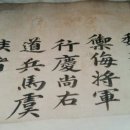 禦侮將軍
行慶尚右
道兵馬虞